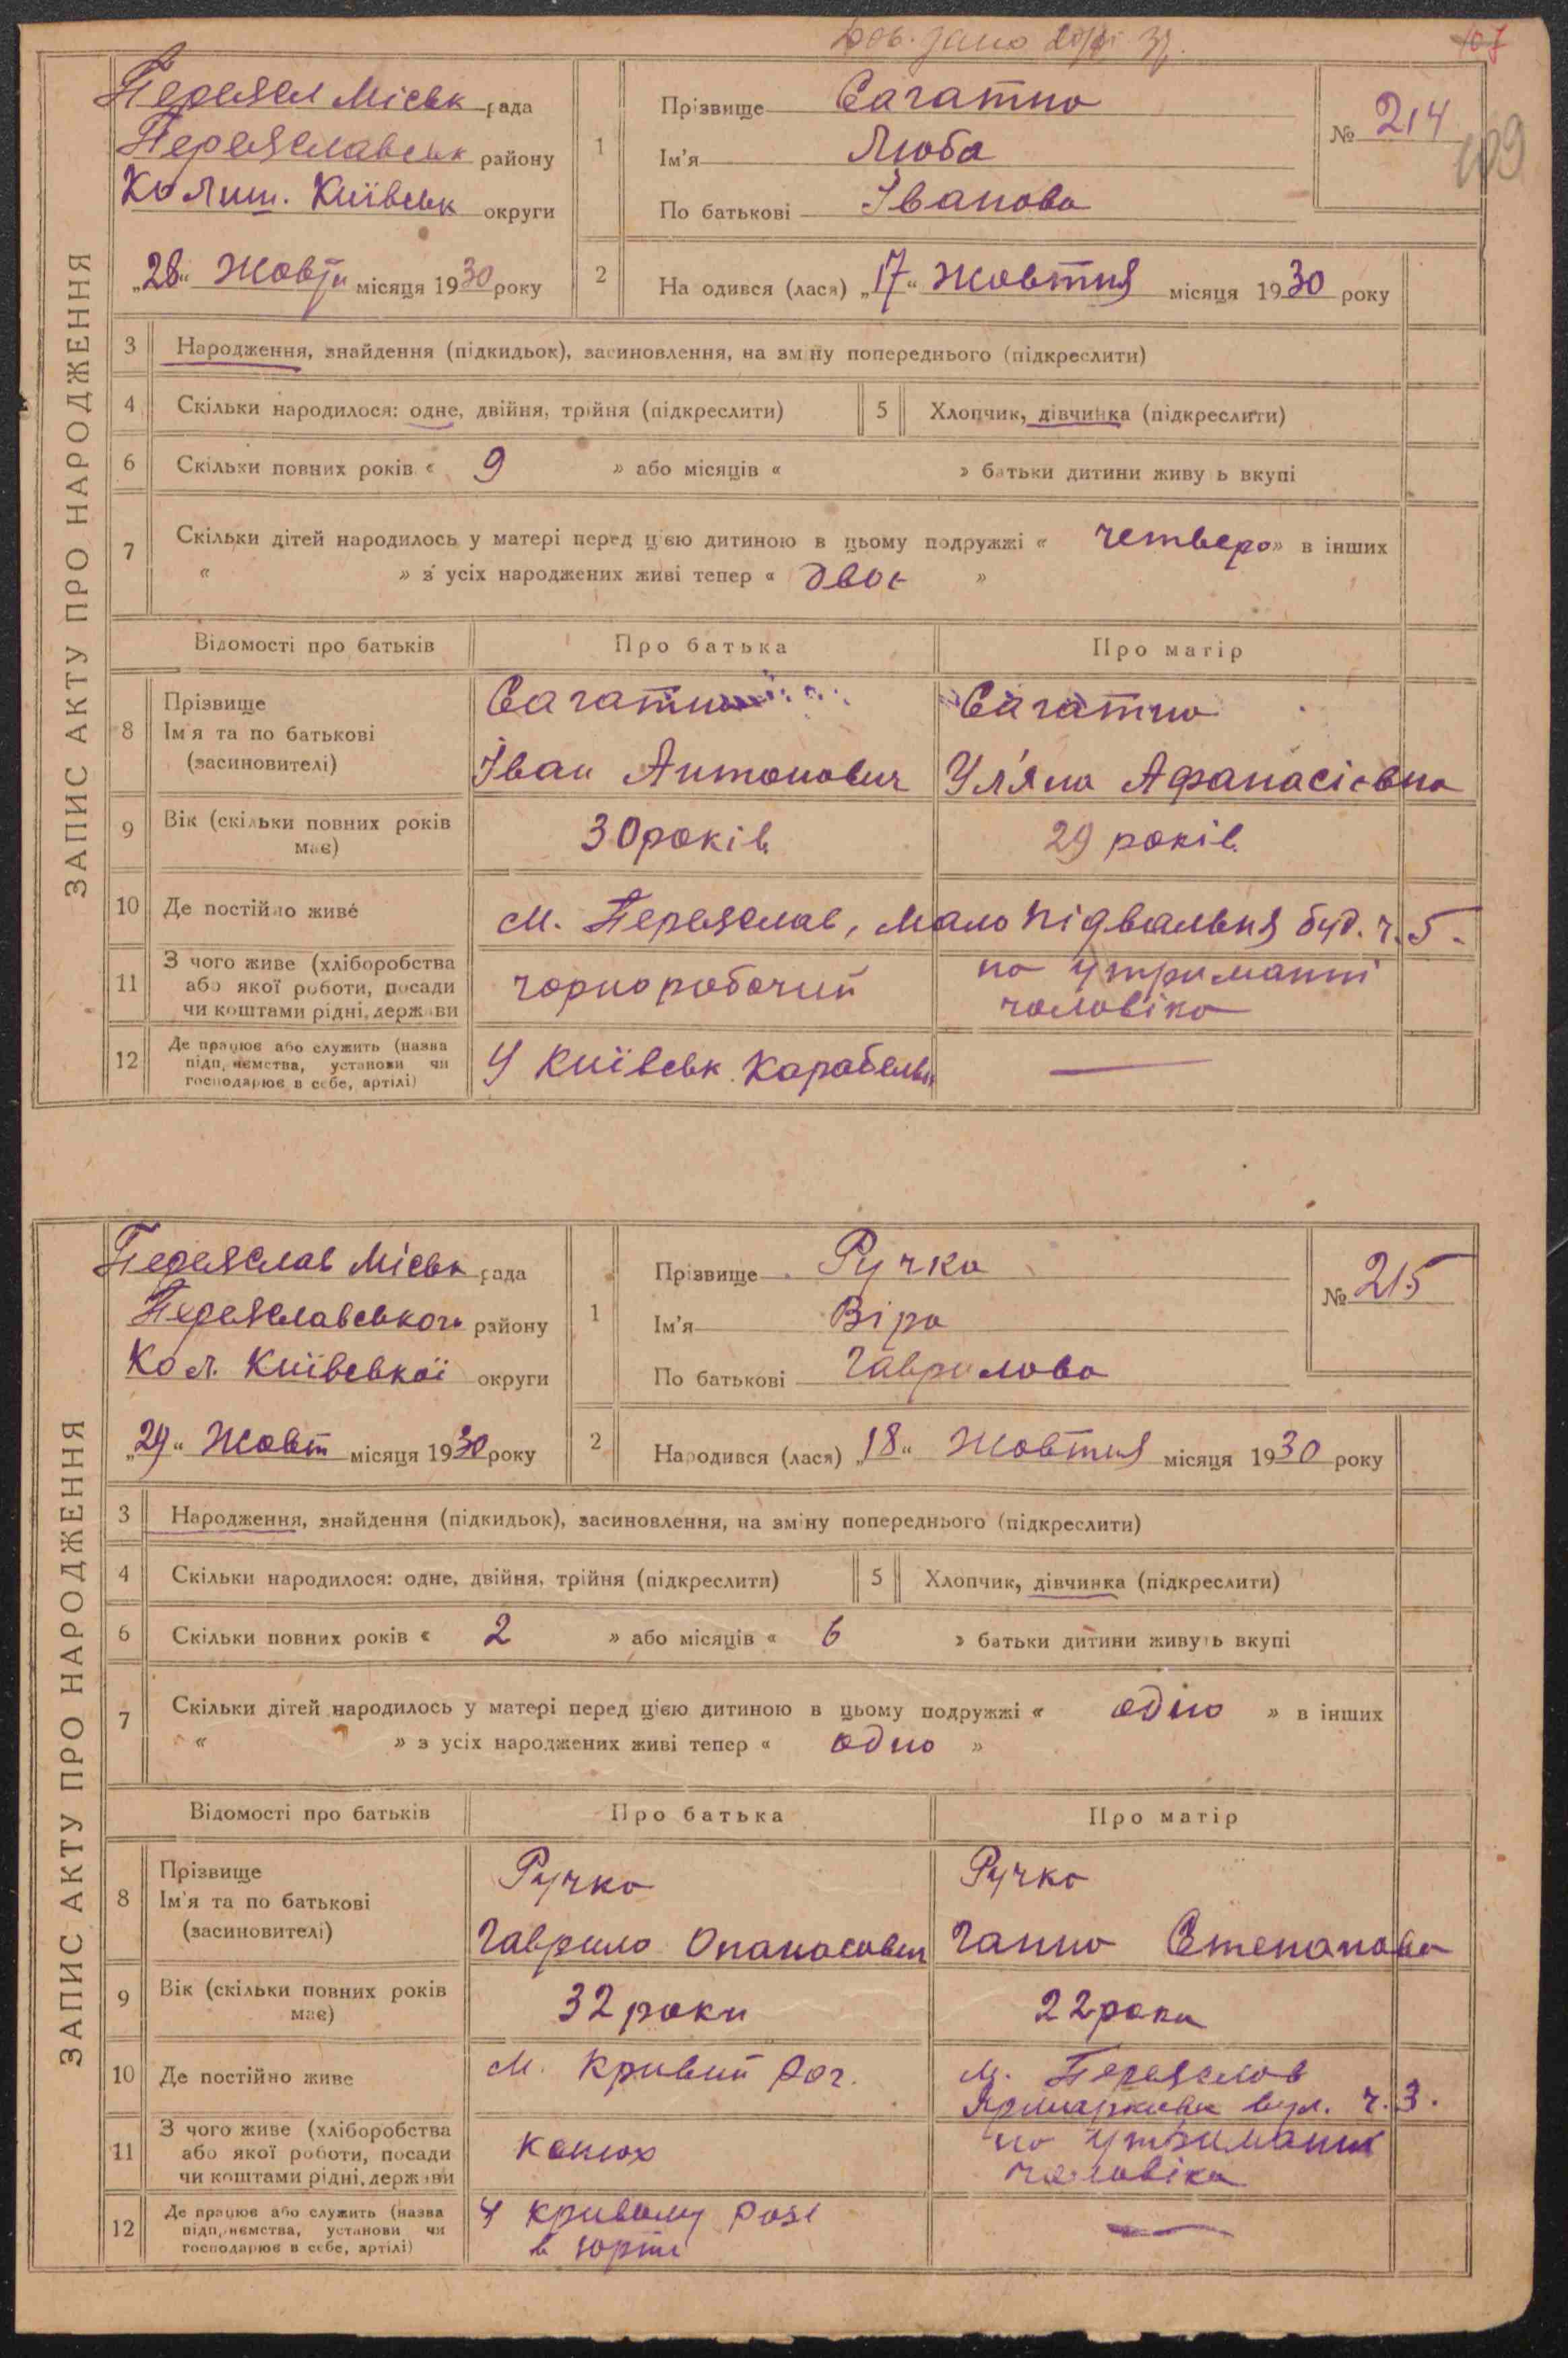 107
109
ЗАПИС АКТУ ПРО НАРОДЖЕННЯ
Переясл Міськ рада
Переяславськ району
Колиш. Київськ округи
„28“ Жовтн місяця 1930 року
1
Прізвище Сагатно
Ім'я Люба
По батькові Іванова
№ 214
2
На одився (лася) „17“ Жовтня місяця 1930 року
3 Народження, знайдення (підкидьок), засиновлення, на зміну попереднього (підкреслити)
4 Скільки народилося: одне, двійня, трійня (підкреслити)
5 Хлопчик, дівчинка (підкреслити)
6 Скільки повних років « 9 » або місяців « » батьки дитини живу ь вкупі
7 Скільки дітей народилось у матері перед цією дитиною в цьому подружжі « четверо » в інших
« » з усіх народжених живі тепер « двоє »
Відомості про батьків Про батька Про матір
8 Прізвище Сагатно Сагатно
Ім'я та по батькові
(засиновителі) Іван Антонович Ул'яна Афанасієвна
9 Вік (скільки повних років має) 30 років 29 років
10 Де постійно живе м. Переяслав, Мало підвальна буд. ч. 5.
11 З чого живе (хліборобства або якої роботи, посади чи коштами рідні, держави чорноробочий на утриманні чоловіка
12 Де працює або служить (назва підприємства, установи чи господарює в себе, артілі) У Київськ. Карабельн —
ЗАПИС АКТУ ПРО НАРОДЖЕННЯ
Переяслав Міськ рада
Переяславського району
Кол. Київської округи
„29“ Жовт місяця 1930 року
1
Прізвище Ручка
Ім'я Віра
По батькові Гаврилова
№ 215
2
Народився (лася) „18“ Жовтня місяця 1930 року
3 Народження, знайдення (підкидьок), засиновлення, на зміну попереднього (підкреслити)
4 Скільки народилося: одне, двійня, трійня (підкреслити)
5 Хлопчик, дівчинка (підкреслити)
6 Скільки повних років « 2 » або місяців « 6 » батьки дитини живуть вкупі
7 Скільки дітей народилось у матері перед цією дитиною в цьому подружжі « одно » в інших
« » з усіх народжених живі тепер « одно »
Відомості про батьків Про батька Про матір
8 Прізвище Ручка Ручка
Ім'я та по батькові
(засиновителі) Гаврило Опанасович Ганна Степанова
9 Вік (скільки повних років має) 32 роки 22 роки
10 Де постійно живе м. Кривий Рог. м. Переяслав
Ярмаркова вул. ч. 3.
11 З чого живе (хліборобства або якої роботи, посади чи коштами рідні, держави конюх на утриманні чоловіка
12 Де працює або служить (назва підприємства, установи чи господарює в себе, артілі) У Кривому Розі —